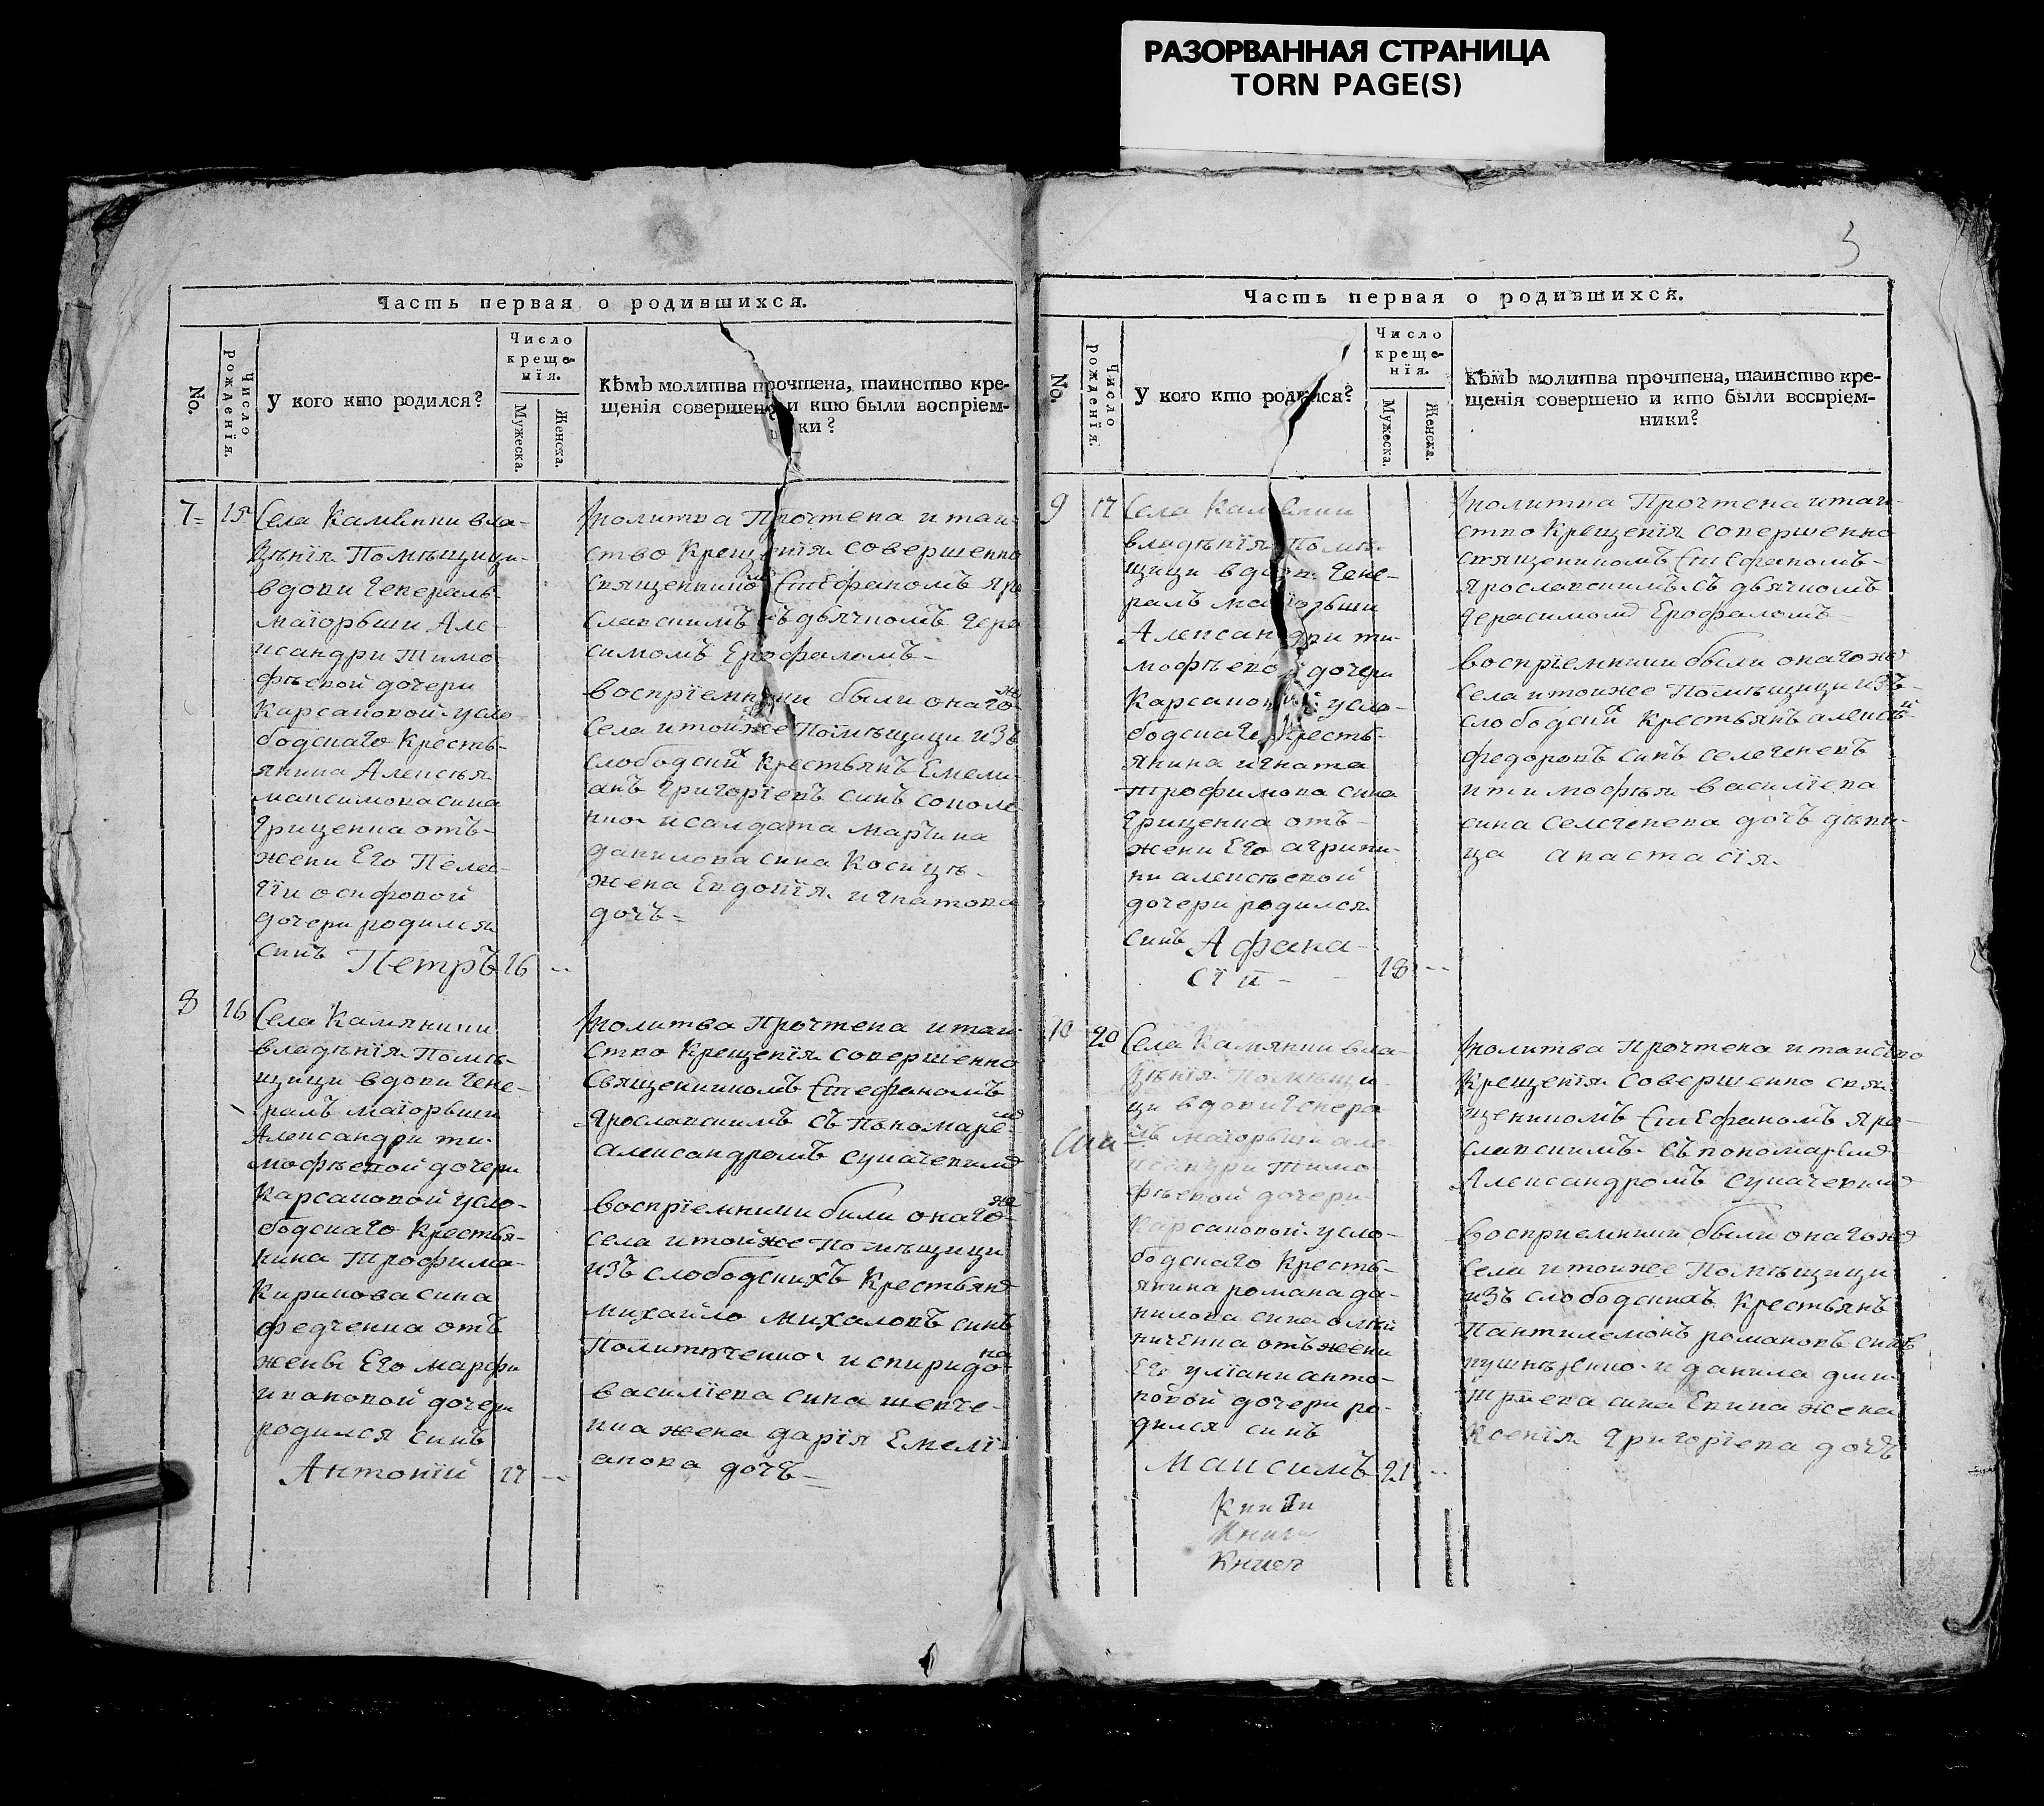 РАЗОРВАННАЯ СТРАНИЦА
TORN PAGE(S)
Часть первая о родившихся.
No.
Число рожденїя.
У кого кто родился?
Число
креще-
нїя.
Мужеска.
Женска.
Кѣмъ молитва прочтена, таинство кре-
щенія совершено и кто были воспріем-
ки?
7=
15
Села Камянки вла-
дѣнїя Помѣщици-
вдови Генераль
маїорьши Але-
ксандри Тимо
фѣевой дочери
Карсаковой усло
бодскаго Кресть-
янина Алексѣя
максимова сина
Грищенка отъ-
жени Его Пела-
гїи осифовой
дочери родился
синъ Петръ 16 --
молитва Прочтена и таи-
ство Крещенїя совершенно
священникомъ Стефаномъ Яро
славскимъ съ дьячкомъ Гера
симомъ Ерофаломъ-
воспрїемники были онаго же
села и тойже Помѣщици изъ
слободских Крестьянъ Емели
анъ Григорїевъ синъ
и салдата мартина
данилова сина
жена Евдокїя игнатова
дочь=
8
16
Села Камянки
владѣнїя Помѣ-
щици вдови Гене-
ралъ маїорьши
Александри ти-
мофѣевой дочери
Карсаковой усло-
бодскаго Крестья-
нина Трофима-
Кирикова сина
федченка отъ
жены Его марфи
ивановой дочери
родился синъ
Антонїй 17 --
молитва Прочтена и таи-
ство Крещенїя совершенно
Священникомъ Стефаномъ
Ярославскимъ съ Пономаремъ
Александромъ
воспрїемники били онаго же
села и тойже Помѣщици
изъ слободскихъ Крестьянъ
михайло михаловъ синъ
и спиридона
василїева сина шевче-
нка жена дарїя Емелї
анова дочь-
3
Часть первая о родившихся.
No.
Число рожденїя.
У кого кто родился?
Число
креще-
нїя.
Мужеска.
Женска.
Кѣмъ молитва прочтена, таинство кре-
щенія совершено и кто были воспріем-
ники?
9
17
Села Камянки
владѣнїя Помѣ-
щици вдови Гене-
ралъ маїорьши
Александри ти-
мофѣевой дочери
Карсаковой усло-
бодскаго Кресть-
янина игната
трофимова сина
Грищенка отъ-
жени Его агрипи-
ни алексѣевой
дочери родился
синъ Афана-
сїй - 18 --
молитва Прочтена и таи-
ство Крещенїя совершенно
священникомъ Стефаномъ-
Ярославскимъ съ дьячкомъ
Герасимомъ Ерофаломъ-
воспрїемники были онагоже
села и тоиже Помѣщици изъ-
слободских Крестьянъ алексѣй
федоровъ синъ селегеневъ
и тимофѣя василїева
сина селегенева дочь дѣви-
ца анастасїя
10
20
Села Камянки вла-
дѣнїя Помѣщи
ци вдови Генера
лъ маїорьши але
ксандри тимо
фѣевой дочери
Карсаковой усло-
бодскаго Кресть-
янина романа да-
нилова сина
отъ жени
Его улїани анто-
новой дочери ро-
дился синъ
Максимъ 21 --
молитва Прочтена и таиство
Крещенїя Совершенно свя-
щеникомъ Стефаномъ Яро-
славскимъ съ пономаремъ
Александромъ
восприемники были онагоже
села и тоиже Помѣщици
изъ слободскихъ Крестьянъ
Пантилемонъ романовъ синъ
и данила дми-
трїева сина жена
Ксенїя Григорїева дочь